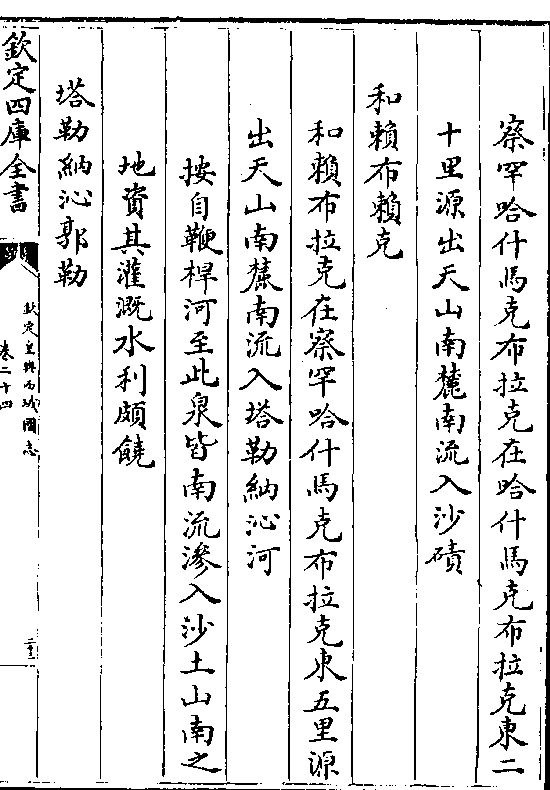 察罕哈什馬克布拉克在哈什馬克布拉克東二
十里源出天山南麓南流入沙磧
和賴布賴克
和賴布拉克在察罕哈什馬克布拉克東五里源
出天山南麓南流入塔勒納沁河
按自鞭桿河至此泉皆南流滲入沙土山南之
地資其灌溉水利頗饒
塔勒納沁郭勒
欽定四庫全書
欽定皇輿西域圖志
卷二十四